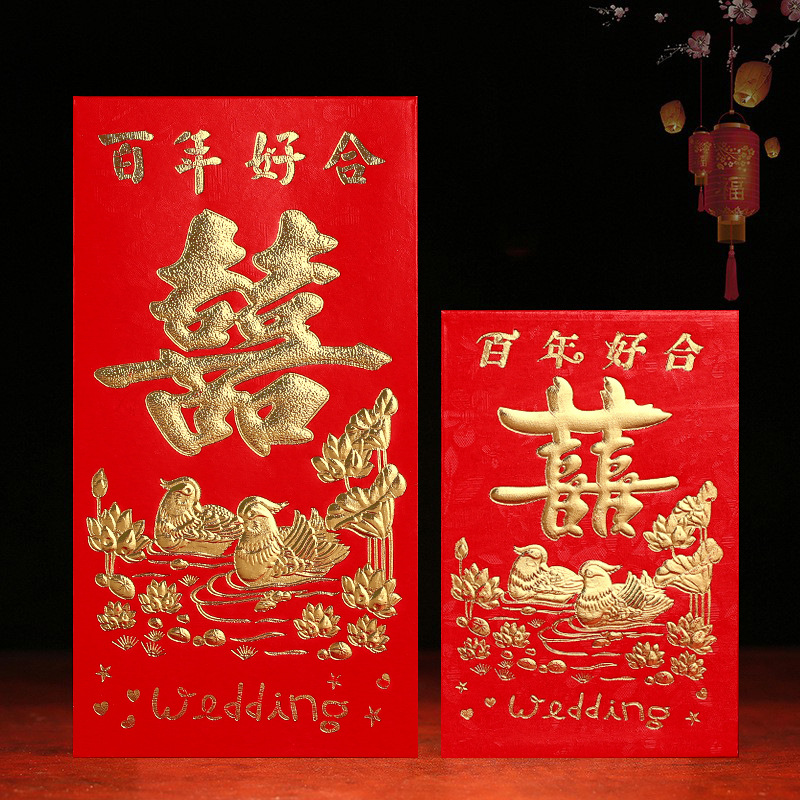 百年好合
囍
Wedding
百年好合
囍
Wedding
福